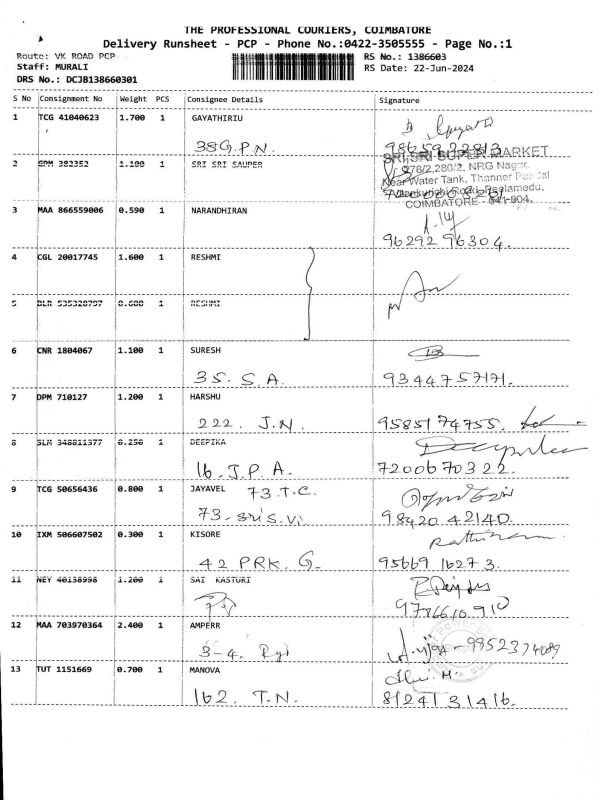 THE PROFESSIONAL COURIERS, COIMBATORE
Delivery Runsheet - PCP - Phone No.:0422-3505555 - Page No.:1
Route: VK ROAD PCP
Staff: MURALI
DRS No.: DCJB138660301
RS No.: 1386603
RS Date: 22-Jun-2024
S No Consignment No Weight PCS Consignee Details Signature
1 TCG 41040623 1.700 1 GAYATHIRIU
38G.P.N. 98659 22813
2 382352 1.100 1 SRI SRI SAUPER
SRI SRI SUPER MARKET
278/2,280/2, NRG Nagar,
Near Water Tank, Thanner Pandal
Road, Peelamedu,
COIMBATORE - 641-004.
3 MAA 866559006 0.590 1 NARANDHIRAN
96292 96304.
4 CGL 20017745 1.600 1 RESHMI
5 BLR 535328797 0.600 1 RESHMI
6 CNR 1804067 1.100 1 SURESH
35. S.A. 9344757171.
7 DPM 710127 1.200 1 HARSHU
222. J.N. 95851 74755.
8 SLM 348811377 0.250 1 DEEPIKA
16. J.P.A. 7200670322.
9 TCG 50656436 0.800 1 JAYAVEL 73.T.C.
73-Sri S.Vi 98420 42140.
10 IXM 506607502 0.300 1 KISORE
42 PRK. G. 95669 16273.
11 NEY 40138998 1.200 1 SAI KASTURI
9786610910
12 MAA 703970364 2.400 1 AMPERR
3-4. - 9952374089
13 TUT 1151669 0.700 1 MANOVA
162. T.N. 81241 31416.